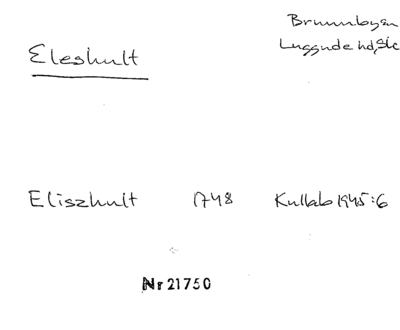 Eleshult
Brunnbysn
Luggude hd, Sk
Eliszhult 1748 Kullab 1945:6
Nr 21750